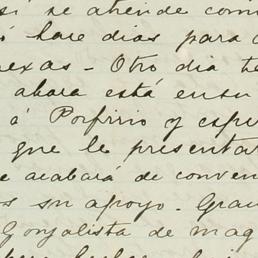 si se atiende com
hace dias para
exas - Otro dia te
ahora está en su
á Porfirio y espe
que le presentar
e acabará de conven
s su apoyo. Gra
Gonzalista de mag